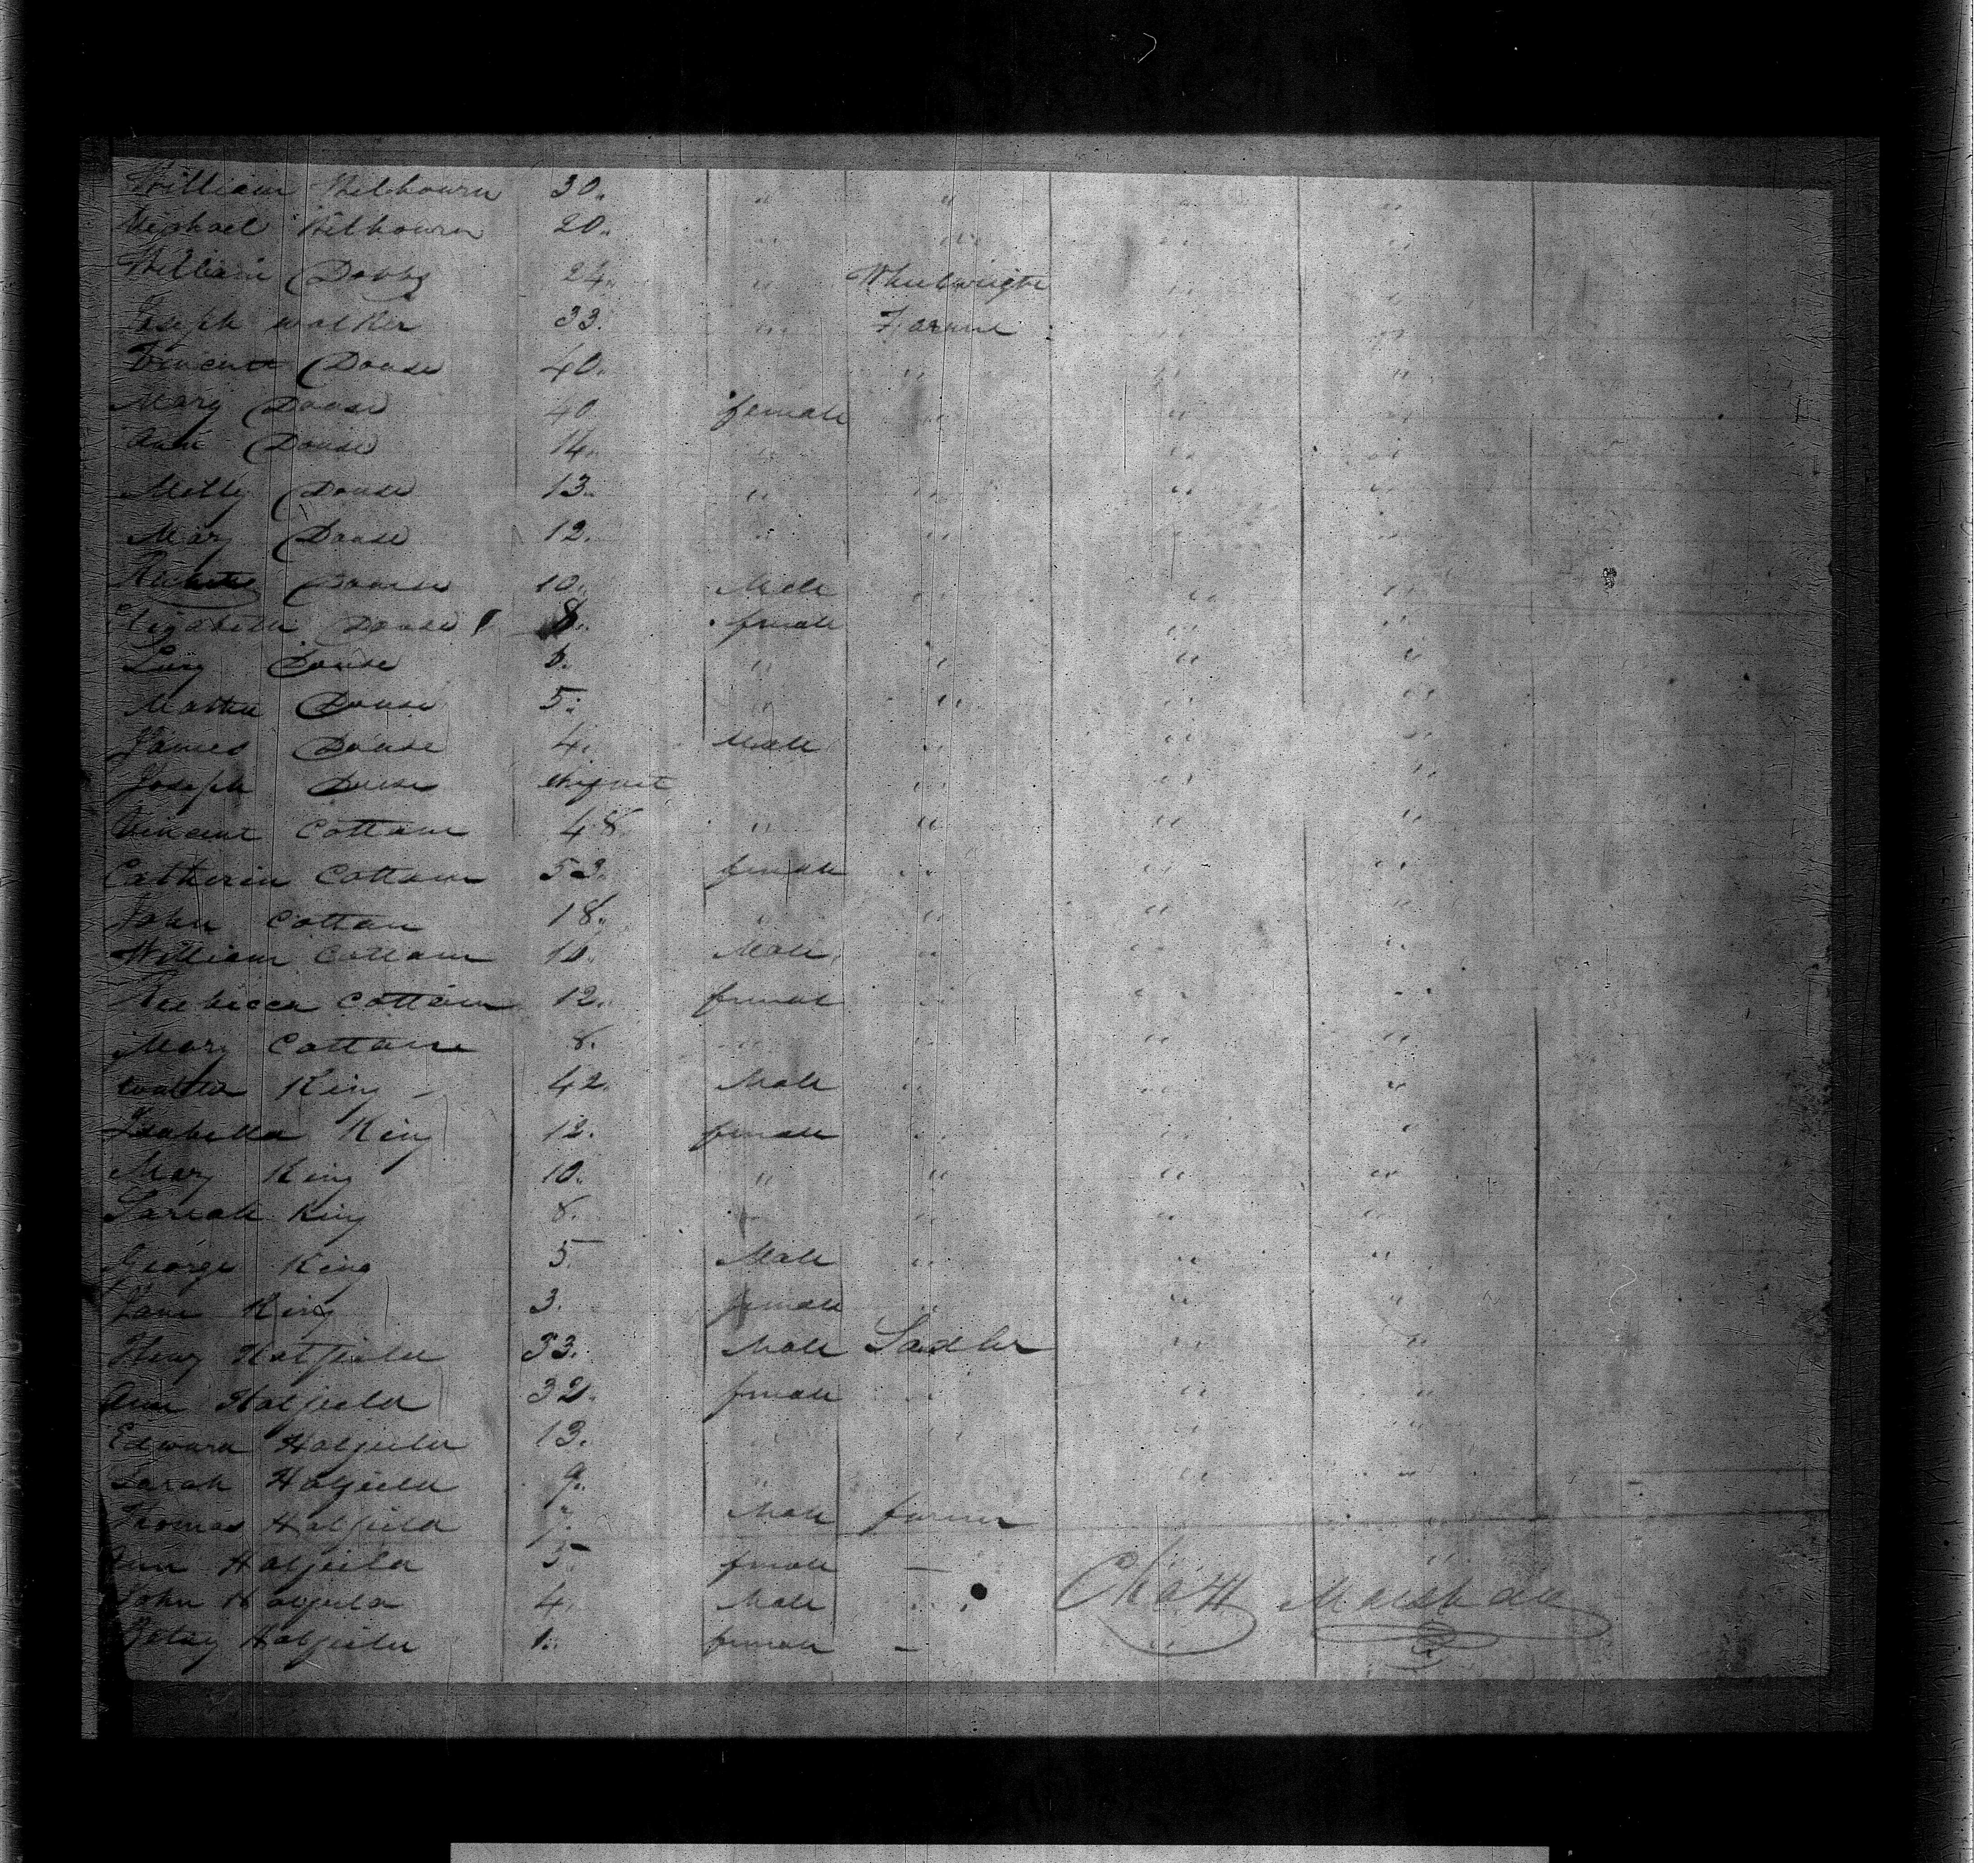 William Kilbourn 30. " " " "
Michael Kilbourn 20. " " " "
William Dobby 24. " Whelwright "
Joseph walker 33. " Farme "
Vincent Douse 40. " " "
Mary Douse 40 female " " "
Ann Douse 14. " " "
Milly Douse 13. " " " "
Mary Douse 12. " " "
Douse 10. Male " " "
Elizabeth Douse 8. female " " "
Lucy Douse " " " "
Martha Douse 5. " " " "
James Douse 4. Male " " "
Joseph Douse Infant " " "
Vincent Cottam 48 " " " "
Catherin Cottam 53. female " " "
John Cottam 18. " " " "
William Cottam Male " " "
Rebicca Cottam 12. female " " "
Mary Cottam 8. " " " "
Walter King 42. Male " " "
Isabella King 12. female " " "
Mary King 10. " " " "
Sarah King 8. " " " "
George King 5 Male " " "
Jane King 3. female " " "
Henry Hatfield 33. Male Sadler " "
Ann Hatfield 32. female " " "
Edward Hatfield 13. " " " "
Sarah Hatfield 9. " " "
Thomas Hatfield 7. Male farmer
Ann Hatfield 5. female –
John Hatfield 4. Male " Marshall
Betsy Hatfield 1. female –